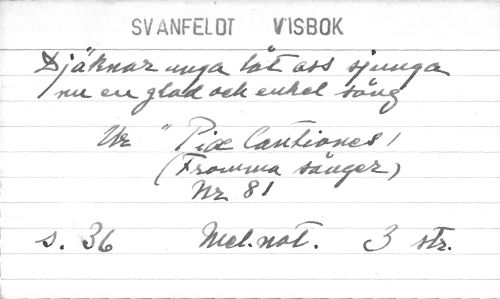 SVANFELDT VISBOK
Djäknar unga låt oss sjunga
nu en glad och enkel sång
Ur "Piæ Cantiones /
(Fromma sånger)
Nr 81
s. 36 Mel.not. 3 str.